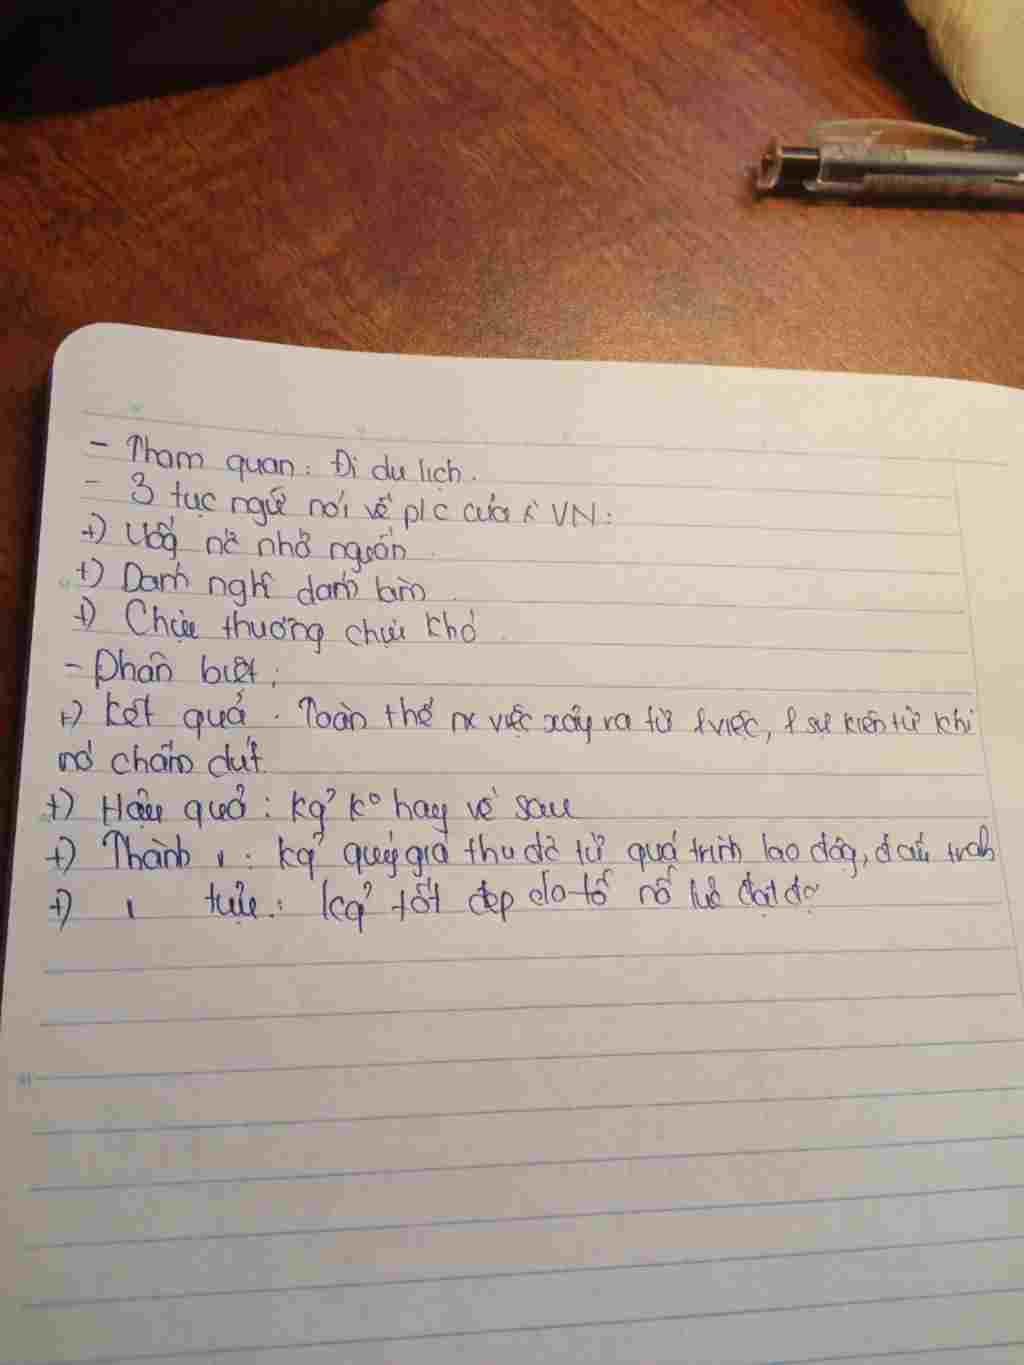 - Tham quan: Đi du lịch.
- 3 tục ngữ nói về p/c của VN:
+) Uốg nc nhớ nguồn.
+) Danh nghĩ danh làm.
+) Chịu thương chịu khó.
- Phân biệt:
+) Kết quả: Toàn thể việc xảy ra từ 1 việc, 1 sự kiện từ khi
nó chấm dứt.
+) Hậu quả: kq' ko hay về sau
+) Thành : kq' quý giá thu đc từ quá trình lao độg, đấu tranh
+) tựu: kq' tốt đẹp do nỗ lực đạt đc